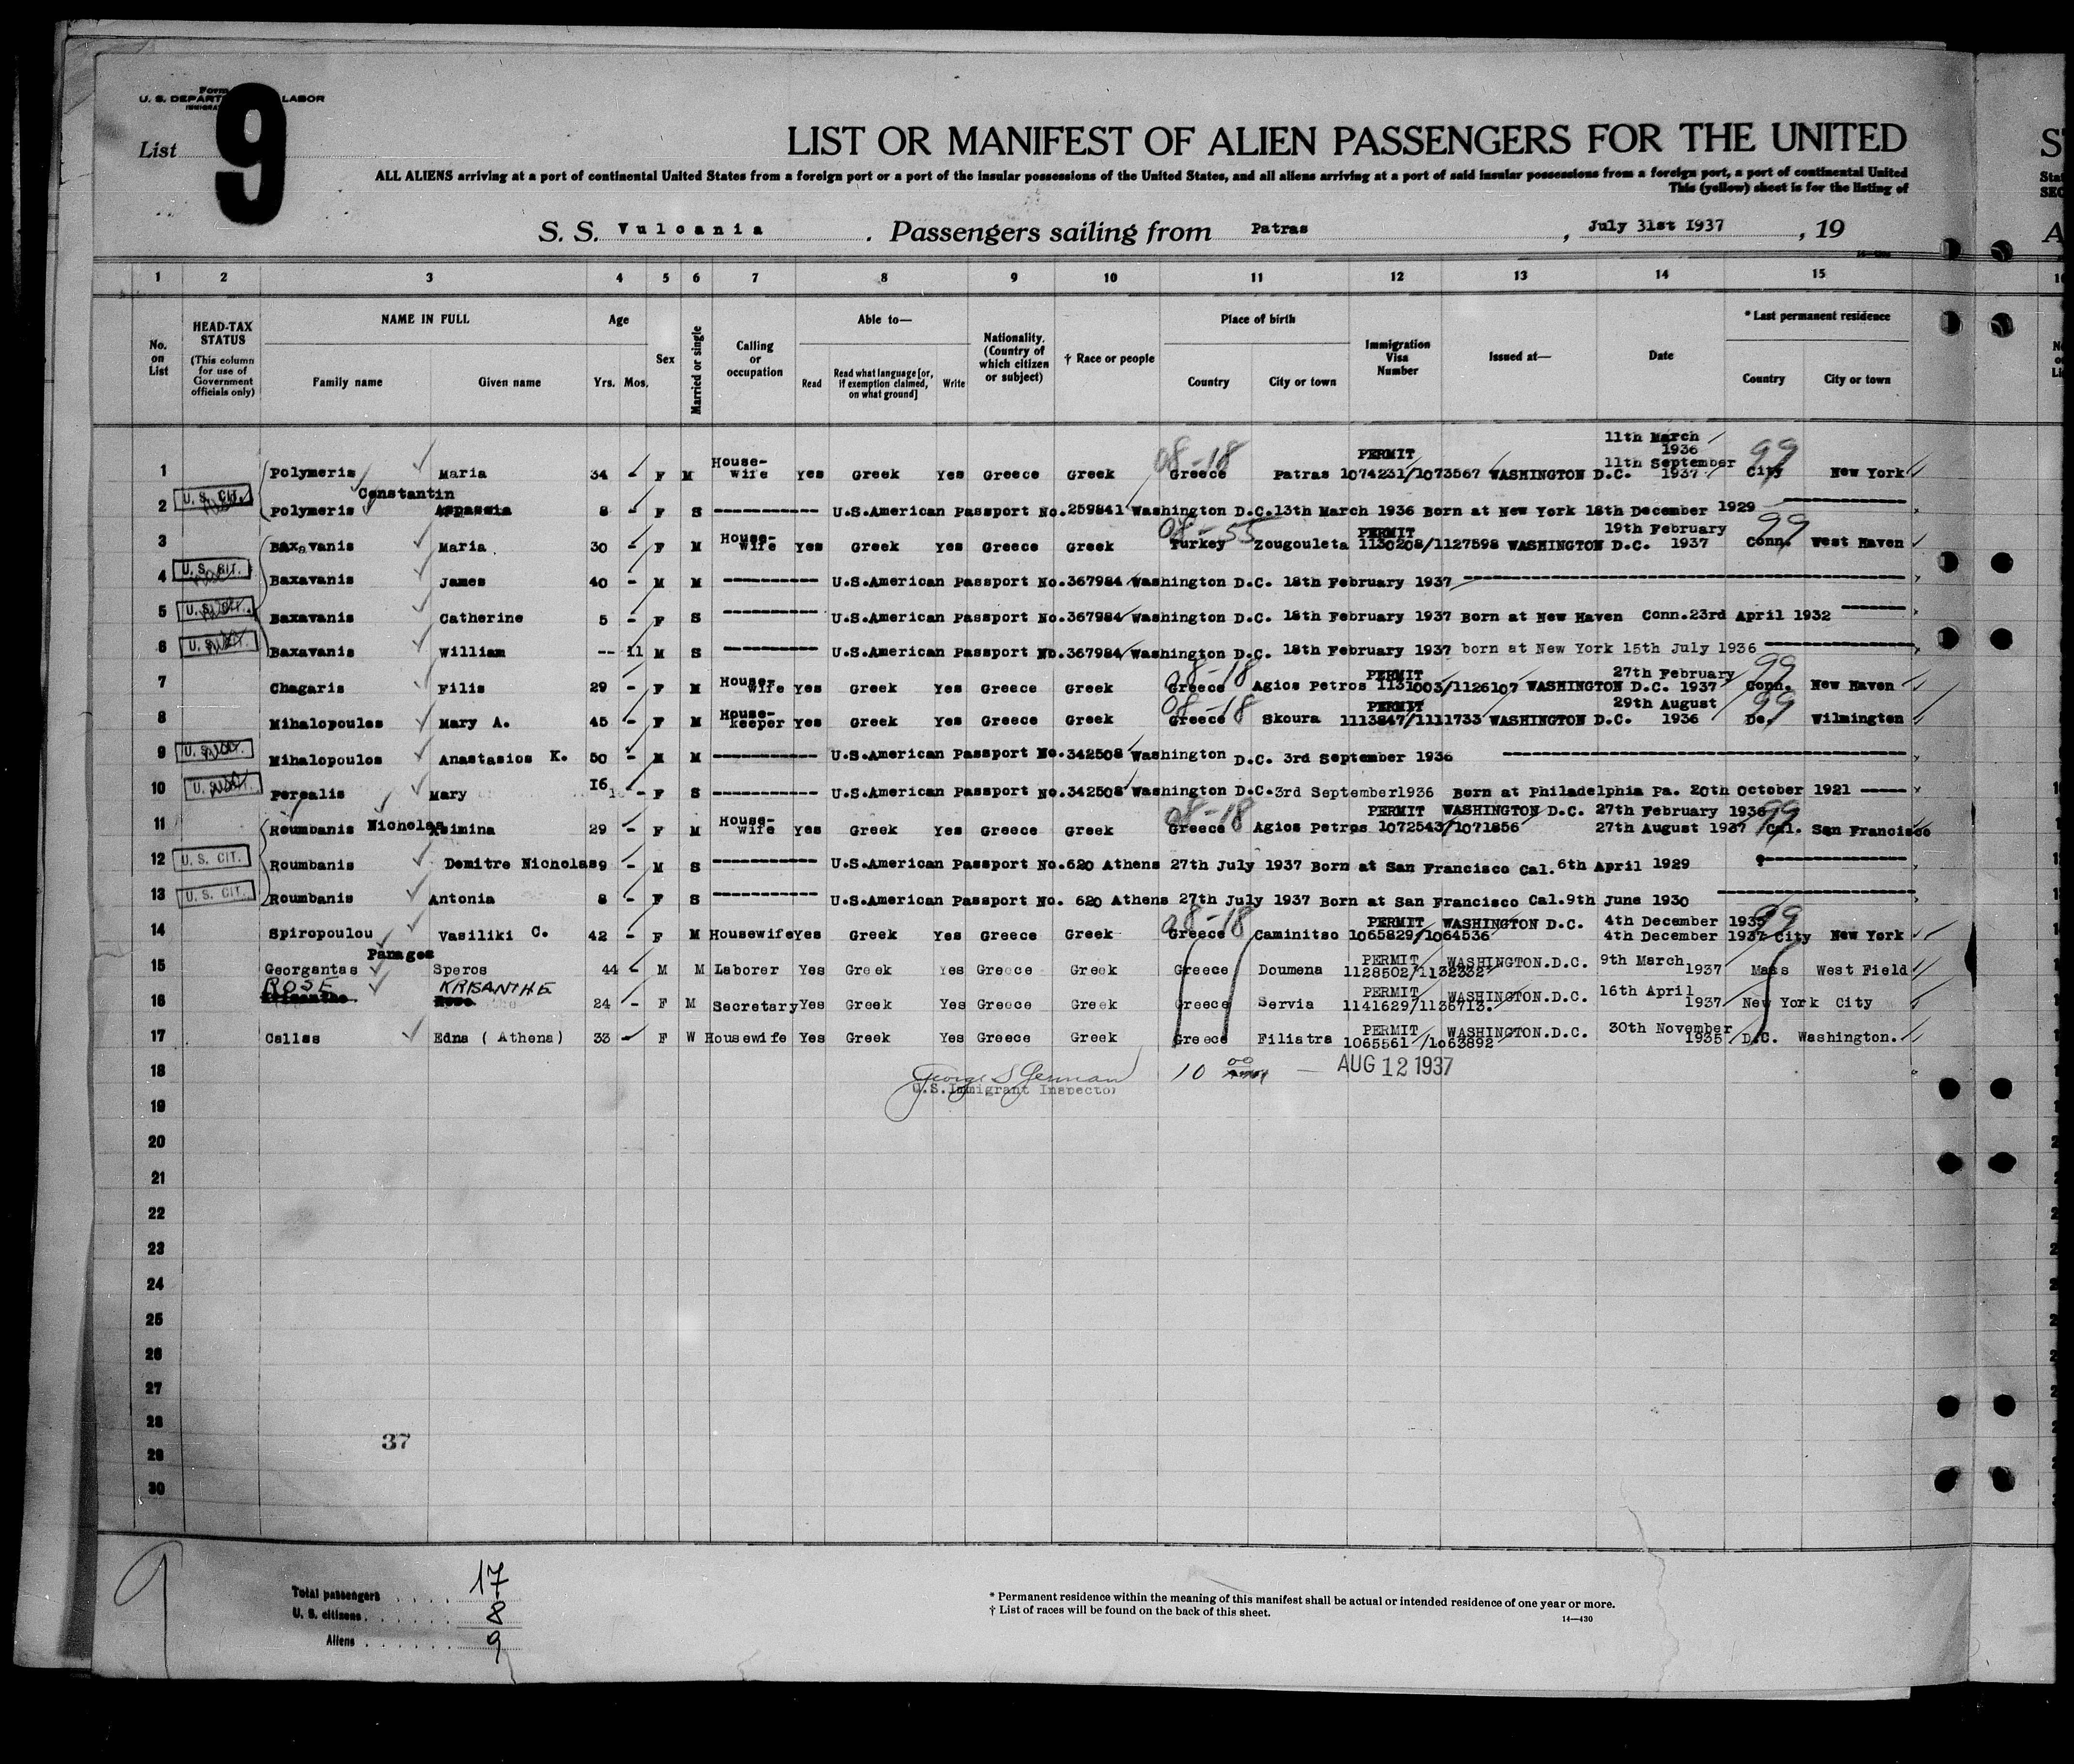 Form
U. S. DEPART LABOR
IMMIGRA
List 9
LIST OR MANIFEST OF ALIEN PASSENGERS FOR THE UNITED
ALL ALIENS arriving at a port of continental United States from a foreign port or a port of the insular possessions of the United States, and all aliens arriving at a port of said insular possessions from a foreign port, a port of continental United
This (yellow) sheet is for the listing of
S. S. Vulcania . Passengers sailing from Patras , July 31st 1937 , 19
1 2 3 4 5 6 7 8 9 10 11 12 13 14 15
No. on List
HEAD-TAX STATUS (This column for use of Government officials only)
NAME IN FULL Family name Given name
Age Yrs. Mos.
Sex
Married or single
Calling or occupation
Able to— Read Read what language [or, if exemption claimed, on what ground] Write
Nationality. (Country of which citizen or subject)
† Race or people
Place of birth Country City or town
Immigration Visa Number
Issued at—
Date
* Last permanent residence Country City or town
11th March 1936
1 Polymeris Maria 34 - F M House-wife Yes Greek Yes Greece Greek 08-18 Greece Patras PERMIT 1074231/1073567 WASHINGTON D.C. 11th September 1937 99 City New York
2 U. S. CIT. Polymeris Constantin Aspassia 8 - F S ---------- U.S.American Passport No.259841 Washington D.C.13th March 1936 Born at New York 18th December 1929
3 Baxavanis Maria 30 - F M House-wife Yes Greek Yes Greece Greek 08-55 Turkey Zougouleta PERMIT 1130208/1127598 WASHINGTON D.C. 19th February 1937 99 Conn. West Haven
4 U. S. CIT. Baxavanis James 40 - M M ---------- U.S.American Passport No.367984 Washington D.C. 18th February 1937
5 U. S. CIT. Baxavanis Catherine 5 - F S ---------- U.S.American Passport No.367984 Washington D.C. 18th February 1937 Born at New Haven Conn.23rd April 1932
6 Baxavanis William -- 11 M S ---------- U.S.American Passport No.367984 Washington D.C. 18th February 1937 born at New York 15th July 1936
7 Chagaris Filis 29 - F M House-wife Yes Greek Yes Greece Greek 08-18 Greece Agios Petros PERMIT 1131003/1126107 WASHINGTON D.C. 27th February 1937 99 Conn. New Haven
8 Mihalopoulos Mary A. 45 - F M House-keeper Yes Greek Yes Greece Greek 08-18 Greece Skoura PERMIT 1113847/1111733 WASHINGTON D.C. 29th August 1936 99 De. Wilmington
9 Mihalopoulos Anastasios K. 50 - M M ---------- U.S.American Passport No.342508 Washington D.C. 3rd September 1936
10 Perealis Mary 16 - F S ---------- U.S.American Passport No.342508 Washington D.C.3rd September1936 Born at Philadelphia Pa. 20th October 1921
11 Roumbanis Nicholas Asimina 29 - F M House-wife Yes Greek Yes Greece Greek 08-18 Greece Agios Petros PERMIT 1072543/1071856 WASHINGTON D.C. 27th February 1936 27th August 1937 99 Cal. San Francisco
12 U. S. CIT. Roumbanis Demitre Nicholas 9 - M S ---------- U.S.American Passport No.620 Athens 27th July 1937 Born at San Francisco Cal.6th April 1929
13 U. S. CIT. Roumbanis Antonia 8 - F S ---------- U.S.American Passport No. 620 Athens 27th July 1937 Born at San Francisco Cal.9th June 1930
14 Spiropoulou Vasiliki C. 42 - F M Housewife Yes Greek Yes Greece Greek 08-18 Greece Caminitso PERMIT 1065829/1064536 WASHINGTON D.C. 4th December 1935 4th December 1937 99 City New York
15 Georgantas Panages Speros 44 - M M Laborer Yes Greek Yes Greece Greek Greece Doumena PERMIT 1128502/1132332 WASHINGTON.D.C. 9th March 1937 Mass West Field
16 ROSE KRISANTHE 24 - F M Secretary Yes Greek Yes Greece Greek Greece Servia PERMIT 1141629/1136713. WASHINGTON.D.C. 16th April 1937 New York City
17 Callas Edna ( Athena) 33 - F W Housewife Yes Greek Yes Greece Greek Greece Filiatra PERMIT 1065561 /1063892 WASHINGTON.D.C. 30th November 1935 D.C. Washington.
18 George S German 10 — AUG 12 1937
U.S.Immigrant Inspector
19
20
21
22
23
24
25
26
27
28
37
29
30
9
Total passengers 17
U. S. citizens 8
Aliens 9
* Permanent residence within the meaning of this manifest shall be actual or intended residence of one year or more.
† List of races will be found on the back of this sheet.
14—430